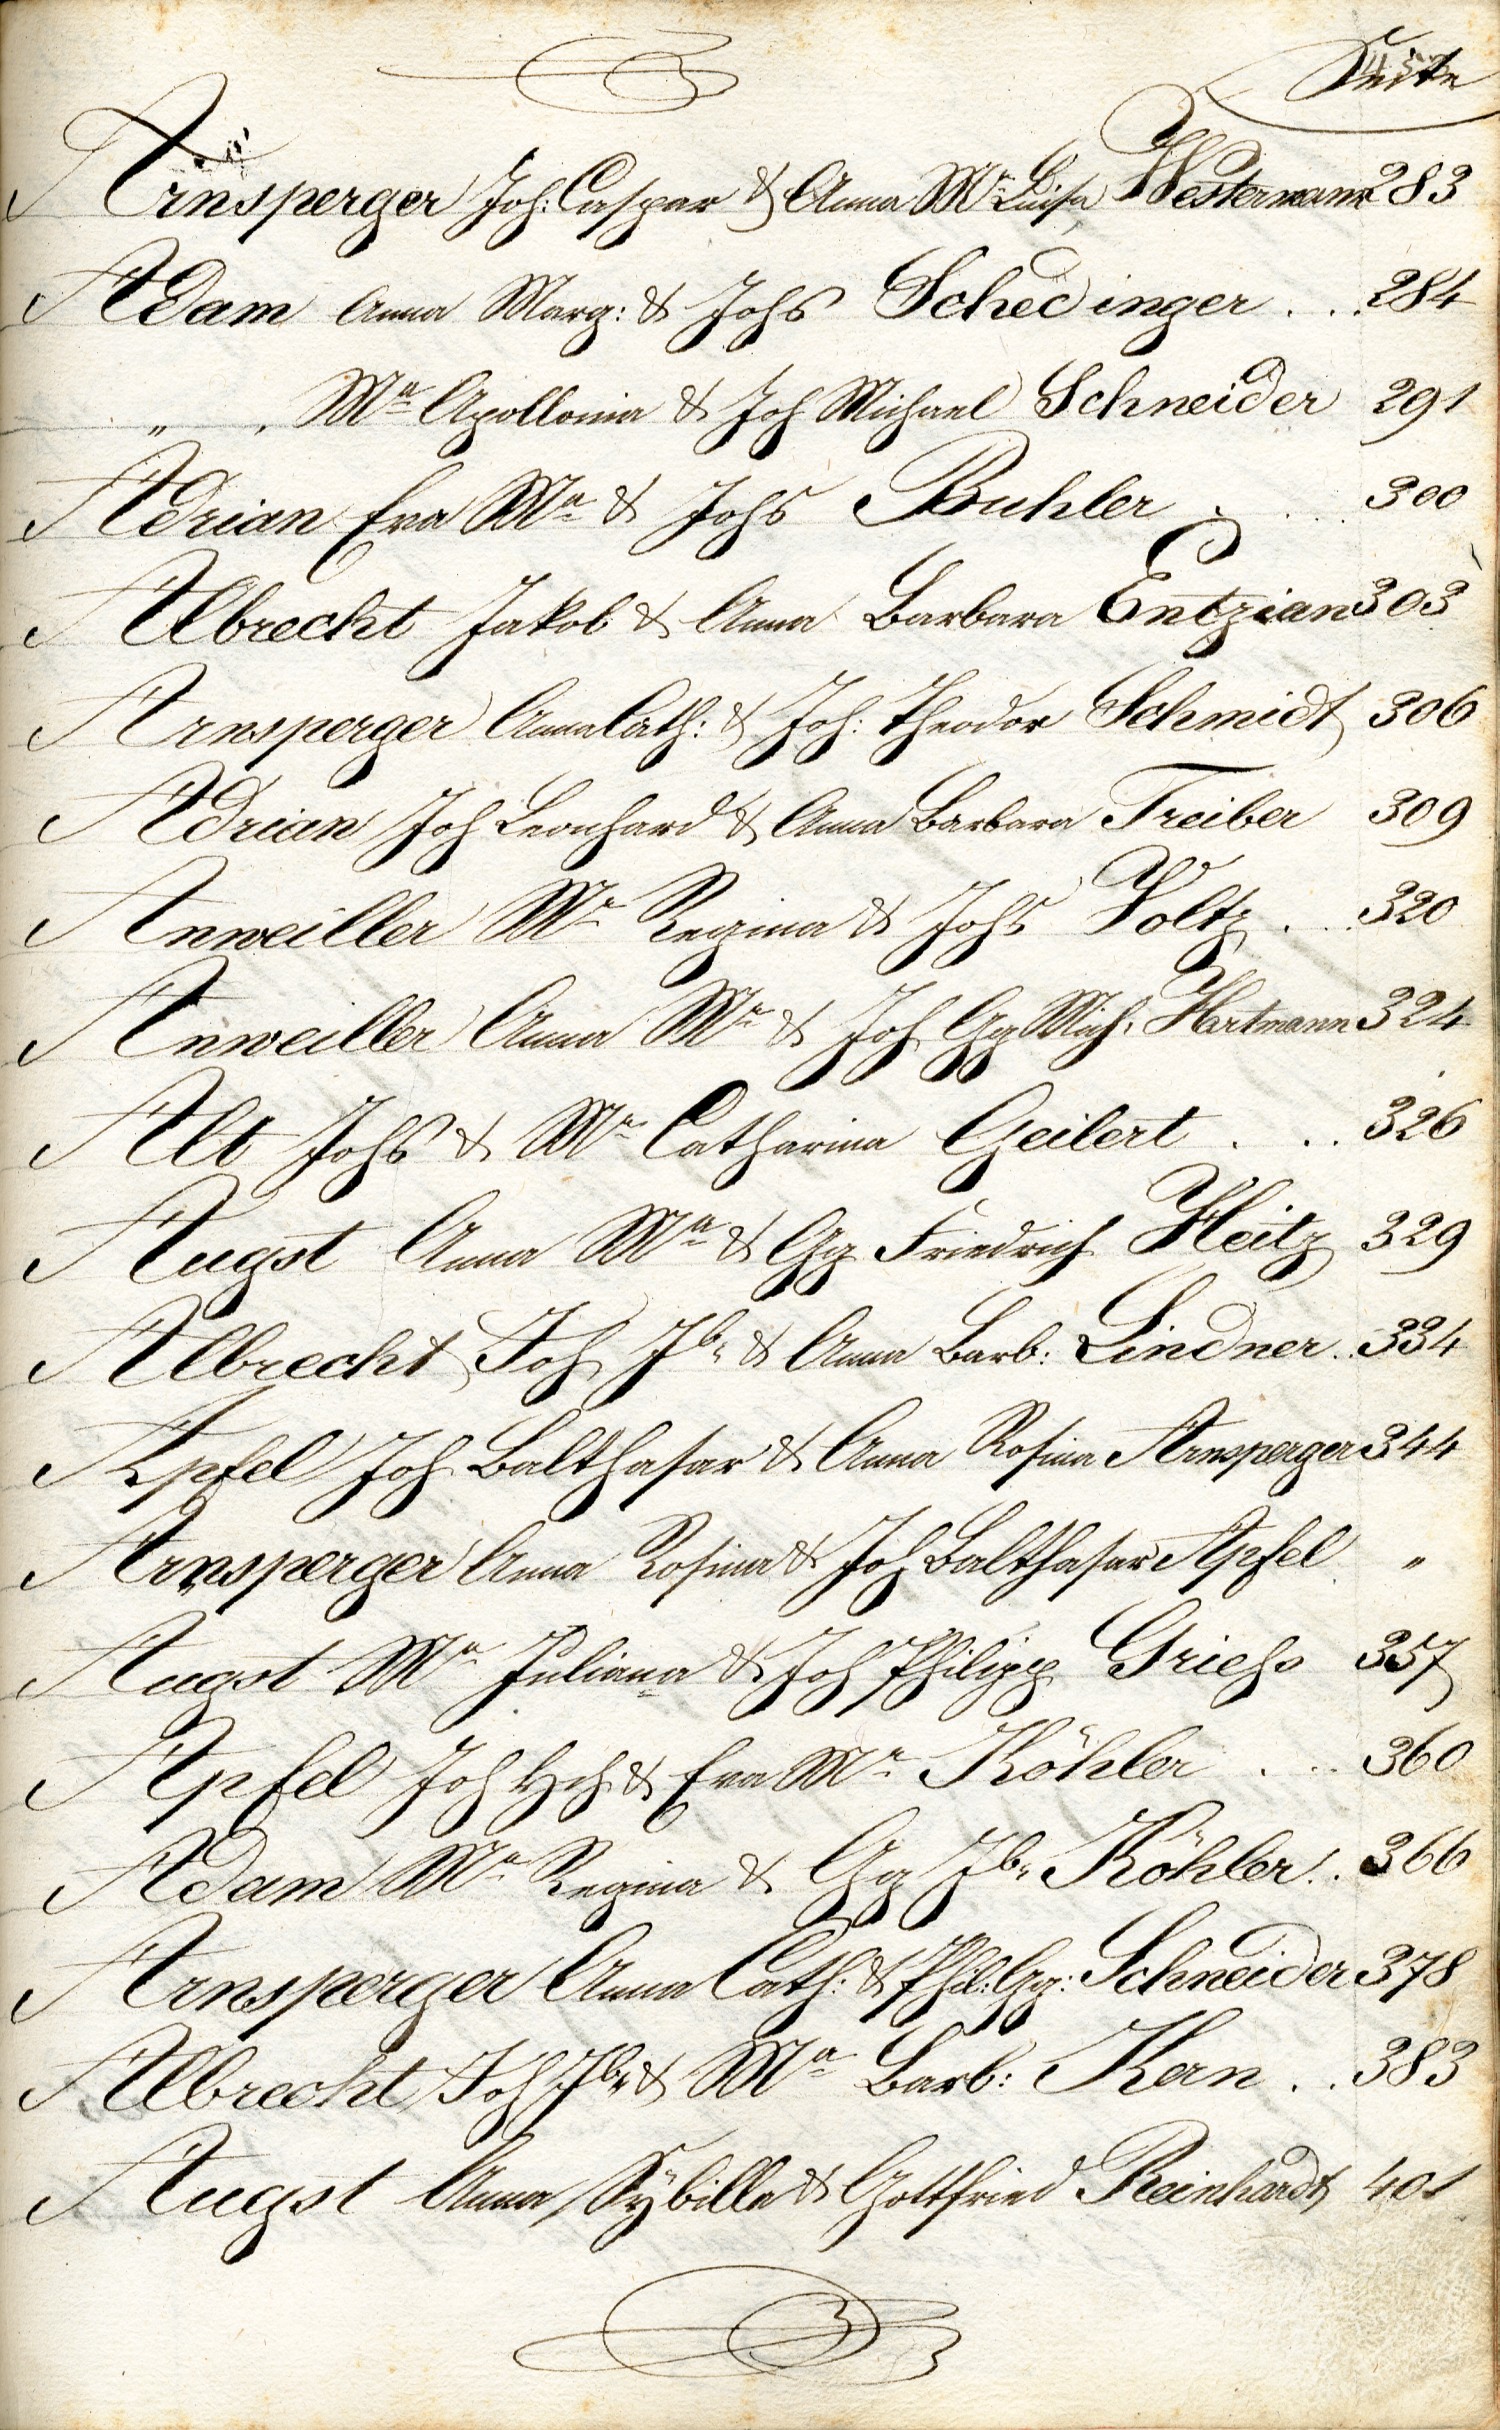 Seite
Arnsperger Joh: Caspar & Anna Mª Luisa Westermann 283
Adam Anna Marg: & Johs Schedinger . . . 284
" " Mª Apollonia & Joh Michael Schneider 291
Adrian Eva Mª & Johs Buhler . . . 300
Albrecht Jakob & Anna Barbara Entzian 303
Arnsperger Anna Cath: & Joh: Theodor Schmidt 306
Adrian Joh Leonhard & Anna Barbara Treiber 309
Anweiller Mª Regina & Johs Voltz . . . 320
Anweiller Anna Mª & Joh Gg Mich. Hartmann 324
Alt Johs & Mª Catharina Geilert . . . 326
Augst Anna Mª & Gg Friedrich Heitz 329
Albrecht Joh Jb. & Anna Barb: Lindner . . 334
Apfel Joh Balthasar & Anna Rosina Arnsperger 344
Arnsperger Anna Rosina & Joh Balthasar Apfel "
Augst Mª Juliana & Joh Philipp Griehs 357
Apfel Joh Hch & Eva Mª Köhler . . . 360
Adam Mª Regina & Gg Jb. Köhler . . 366
Arnsperger Anna Cath: & Phil: Gg: Schneider 378
Albrecht Joh Jb. & Mª Barb: Kern . . 383
Augst Anna Sÿbilla & Gottfried Reinhardt 401